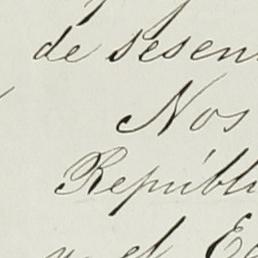 de sesen
Nos
Repúbli
y el E